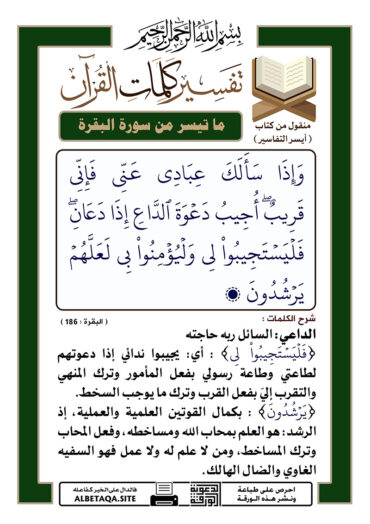 بسم الله الرحمن الرحيم
تفسير كلمات القرآن
منقول من كتاب
( أيسر التفاسير )
ما تيسر من سورة البقرة
وَإِذَا سَأَلَكَ عِبَادِى عَنِّى فَإِنِّى
قَرِيبٌ ۖ أُجِيبُ دَعْوَةَ ٱلدَّاعِ إِذَا دَعَانِ ۖ
فَلْيَسْتَجِيبُوا۟ لِى وَلْيُؤْمِنُوا۟ بِى لَعَلَّهُمْ
يَرْشُدُونَ
شرح الكلمات :
( البقرة : 186 )
الداعي: السائل ربه حاجته
﴿فَلْيَسْتَجِيبُوا۟ لِى﴾ : أي: يجيبوا ندائي إذا دعوتهم
لطاعتي وطاعة رسولي بفعل المأمور وترك المنهي
والتقرب إليّ بفعل القرب وترك ما يوجب السخط.
﴿يَرْشُدُونَ﴾ : بكمال القوتين العلمية والعملية، إذ
الرشد: هو العلم بمحاب الله ومساخطه، وفعل المحاب
وترك المساخط، ومن لا علم له ولا عمل فهو السفيه
الغاوي والضال الهالك.
احرص على طباعة
ونشر هذه الورقة
الدعوية
الورقة
فالدال على الخير كفاعله
ALBETAQA.SITE